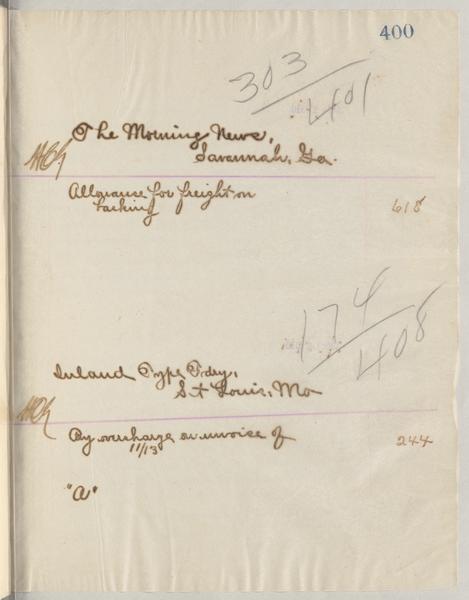 400
303
401
The Morning News,
Savannah, Ga.
Allowance for freight on
backing
618
174
408
Inland Type Fdry,
St Louis, Mo
By overcharge on invoice of
11/13
244
"a"